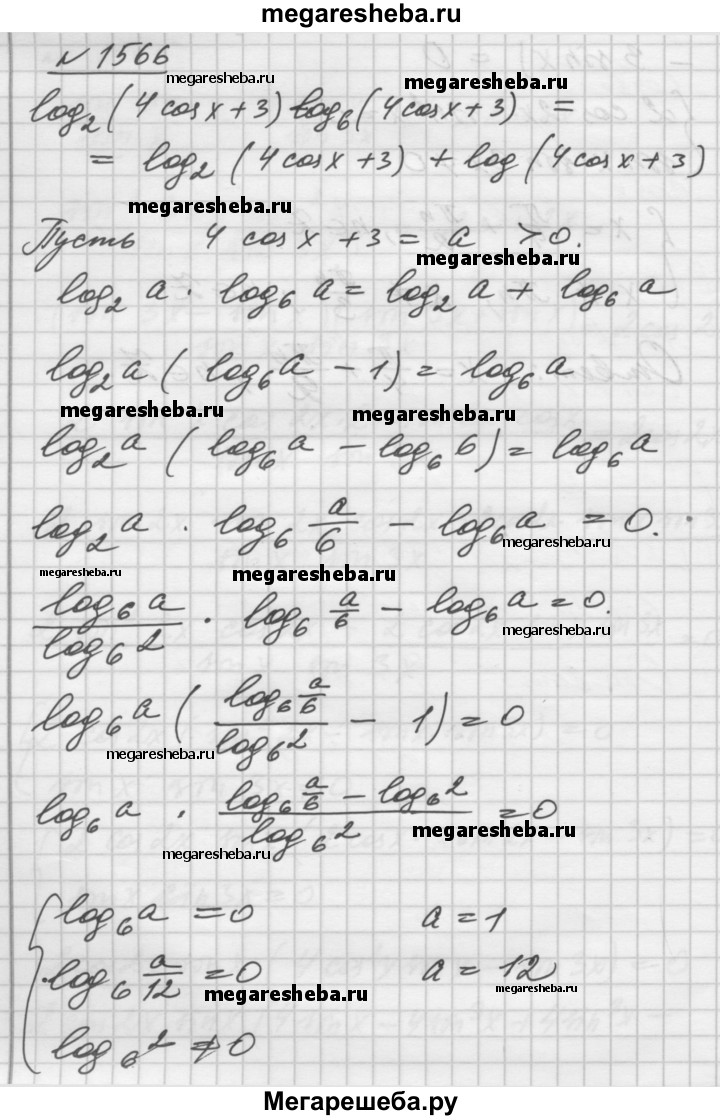 megaresheba.ru
№ 1566
megaresheba.ru megaresheba.ru
log₂(4 cos x + 3) log₆(4 cos x + 3) =
= log₂(4 cos x + 3) + log(4 cos x + 3)
megaresheba.ru
Пусть 4 cos x + 3 = a > 0.
megaresheba.ru
log₂ a · log₆ a = log₂ a + log₆ a
log₂ a (log₆ a − 1) = log₆ a
megaresheba.ru megaresheba.ru
log₂ a (log₆ a − log₆ 6) = log₆ a
log₂ a · log₆ a/6 − log₆ a = 0.
megaresheba.ru
megaresheba.ru megaresheba.ru
log₆ a / log₆ 2 · log₆ a/6 − log₆ a = 0.
megaresheba.ru
log₆ a ( log₆ a/6 / log₆ 2 − 1) = 0
megaresheba.ru
log₆ a · (log₆ a/6 − log₆ 2) / log₆ 2 = 0
megaresheba.ru
megaresheba.ru
log₆ a = 0 a = 1
log₆ a/12 = 0 a = 12
megaresheba.ru megaresheba.ru
log₆ 2 ≠ 0
Мегарешеба.ру